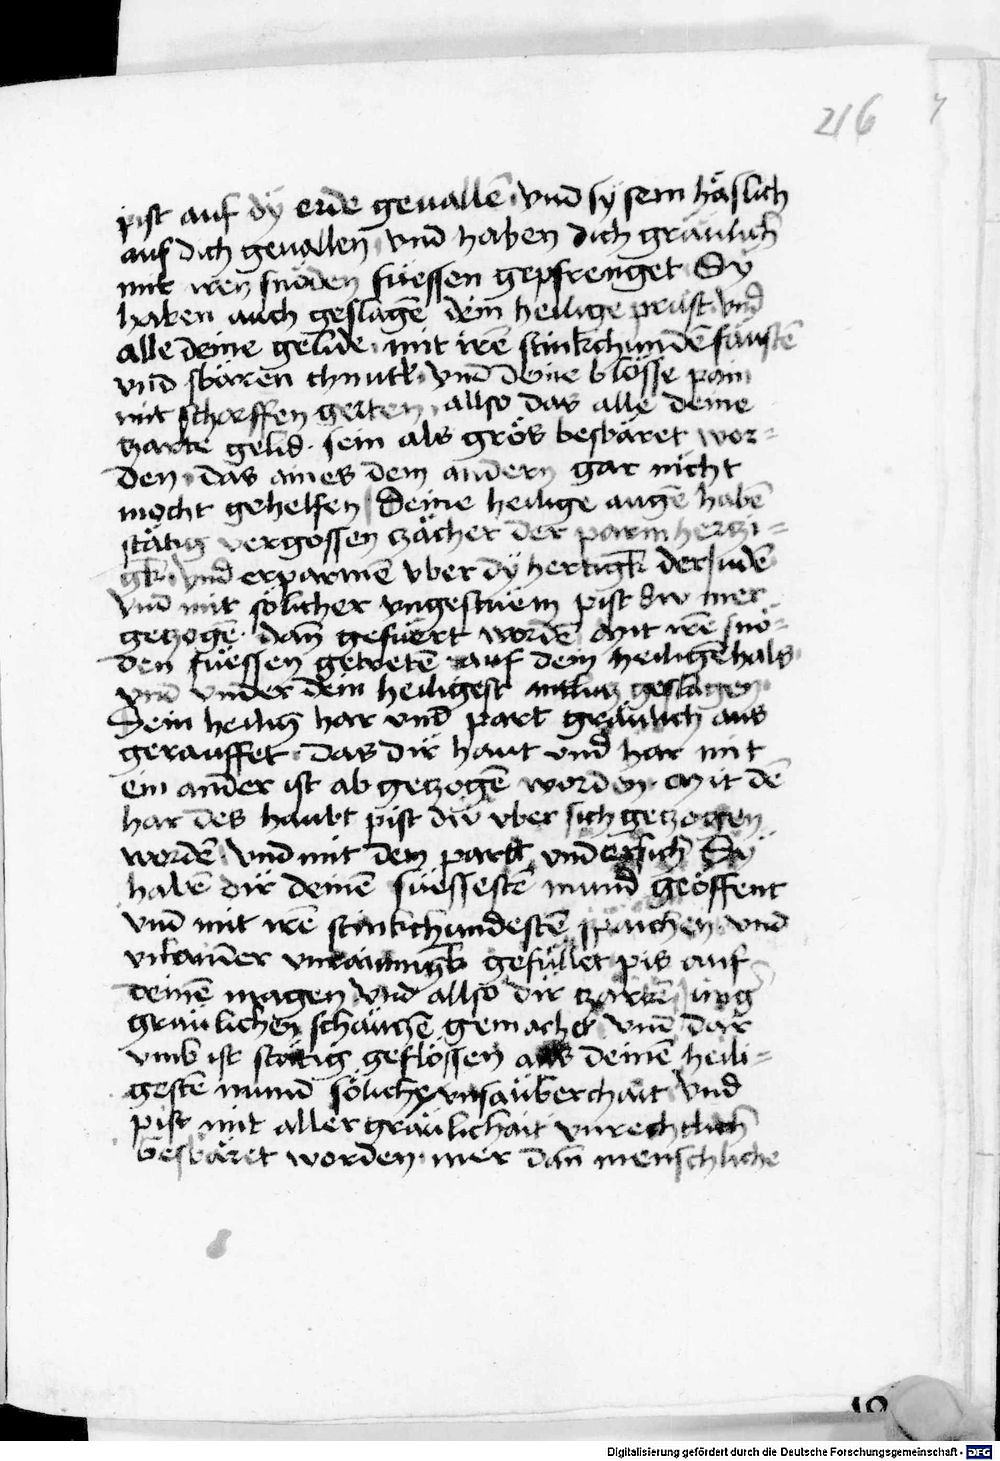 216
pist auf dÿ erde geuallē vnd sÿ sem häslich
auf dich geuallen vnd haben dich gräulich
mit iren snöden füessen gepfrenget Sÿ
haben auch geslagē dein heilige prust vnd
alle deine gelide mit irē stinkchundē fäustē
vnd sbären chnutl vnd deine blösse pain
mit schorffen gerten allso das alle deine
tzarte gelid sein als grös besbäret wor=
den das aines dem andern gar nicht
mocht gehelfen Deine heilige augē habē
stätig vergossen tzächer der parmhertzi=
gk vnd erparmē vber dÿ hertigk der Judē
vnd mit sölicher vngestuem pist dw mer
getzogē dan gefüert wordē Mit irē snö=
den füessen getretē auf dein heiligē hals
vnd vnder dein heiligest antlitz geslagen
Dein heilig har vnd part gräulich aus
gerauffet das dir haut vnd har mit
ein ander ist ab getzogē worden Mit dē
har des haubt pist dw vber sich getzogen
wordē vnd mit dem part vndersich Sÿ
habē dir deinē süessestē mund geöffent
vnd mit irē stinkchundestē spaichen vnd
vnrainigk gefüllet pis auf
deinē magen vnd allso dir tzartē
gräulichen gemacht vnd dar
vmb ist stätig geflössen aus deinē heili=
gestē mund söliche vnsäuberchait vnd
pist mit aller gräulichait vnrechtlich
besbäret worden mer dan menschliche
Digitalisierung gefördert durch die Deutsche Forschungsgemeinschaft - DFG